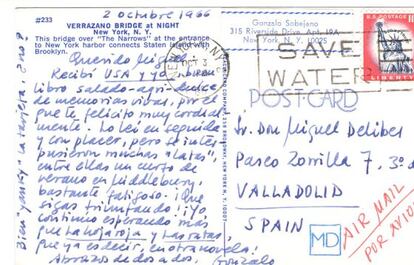 #233
2 octubre 1966
VERRAZANO BRIDGE at NIGHT
New York, N. Y.
This bridge over "The Narrows" at the entrance
to New York harbor connects Staten Island with
Brooklyn.
Querido Miguel:
Recibí USA y yo,
libro salado-agridulce
de memorias vivas, por el
que te felicito muy cordial-
mente. Lo leí en seguida
y con placer, pero se inter-
pusieron muchas "latas",
entre ellas un curso de
verano en Middlebury,
bastante fatigoso. Que
sigas triunfando. Yo
continúo esperando más
que la hoja roja y Las ratas,
que ya es decir, en otra novela!
Abrazos de dos a dos. Gonzalo
Bien "yanqui" la tarjeta. ¿no?
Gonzalo Sobejano
315 Riverside Drive, Apt. 19A
New York, N.Y. 10025
OCT 3
SAVE
WATER
U.S. POSTAGE
LIBERTY
POST CARD
Sr. Don Miguel Delibes
Paseo Zorrilla 7, 3º
VALLADOLID
SPAIN
MD
AIR MAIL
POR AVION